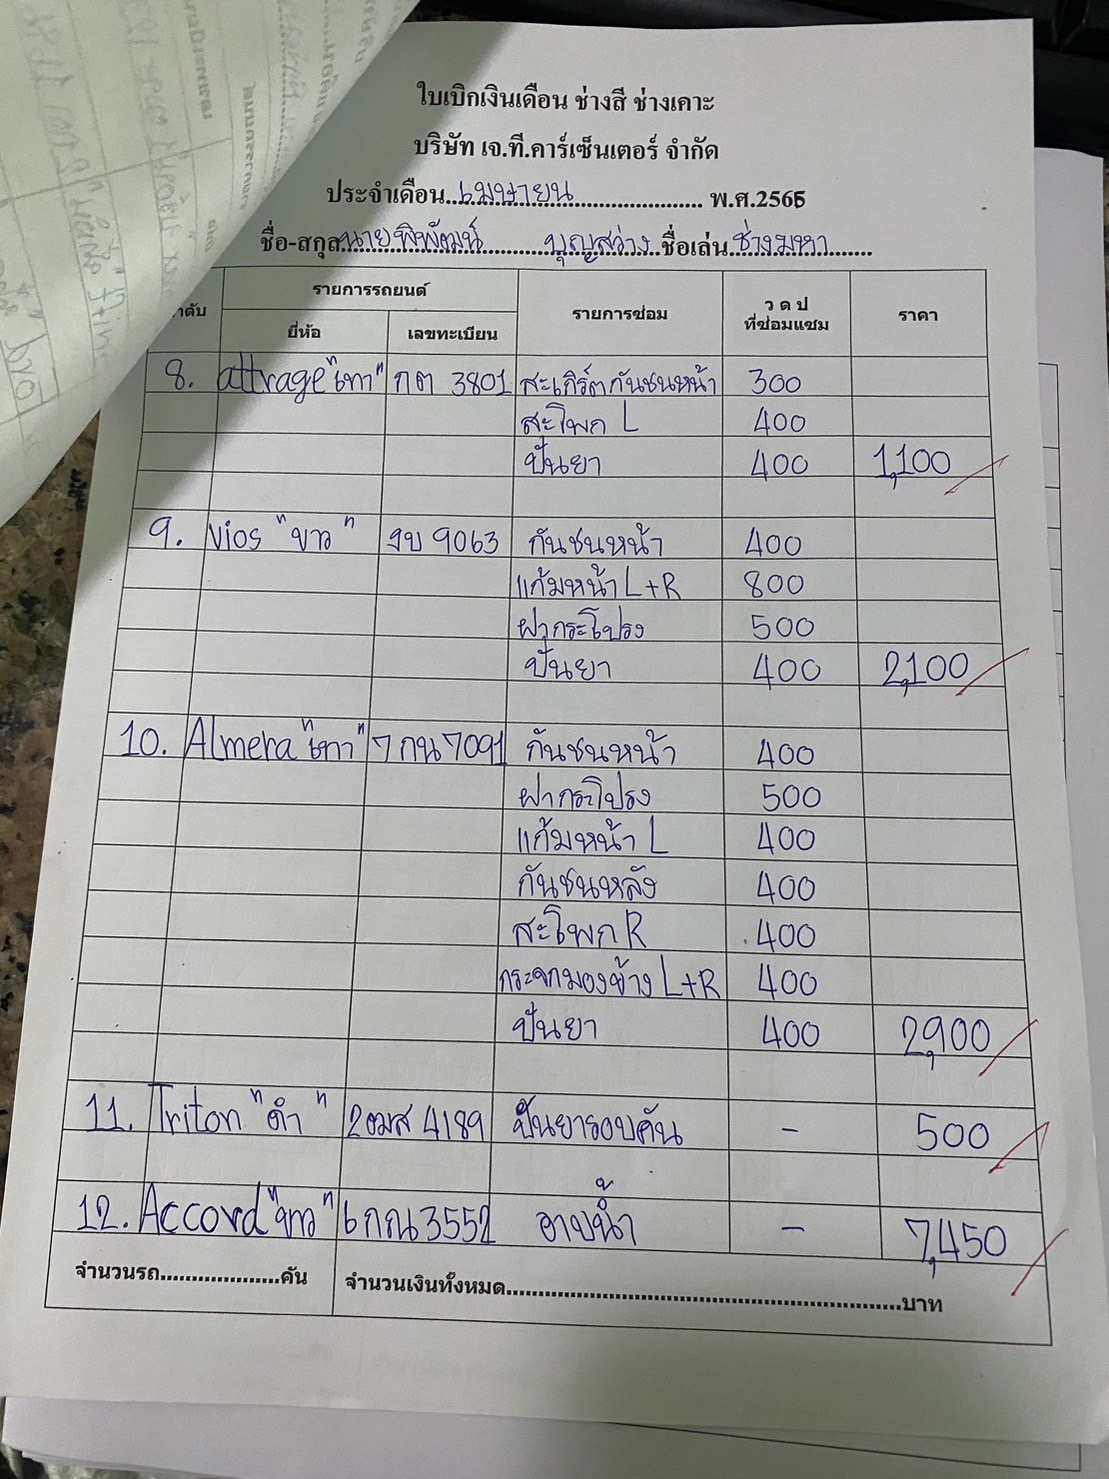 ใบเบิกเงินเดือน ช่างสี ช่างเคาะ
บริษัท เจ.ที.คาร์เซ็นเตอร์ จำกัด
ประจำเดือน..เมษายน.......................... พ.ศ.2565
ชื่อ-สกุล นายพิพัฒน์ บุญสว่าง ชื่อเล่น ช่างมหา
ลำดับ รายการรถยนต์ รายการซ่อม ว ด ป ที่ซ่อมแซม ราคา
ยี่ห้อ เลขทะเบียน
8. attrage "เทา" กต 3801 สะเกิร์ตกันชนหน้า 300
สะโพก L 400
ปั่นยา 400 1,100
9. Vios "ขาว" งบ 9063 กันชนหน้า 400
แก้มหน้า L+R 800
ฝากระโปรง 500
ปั่นยา 400 2,100
10. Almera "เทา" 7 กน 7091 กันชนหน้า 400
ฝากระโปรง 500
แก้มหน้า L 400
กันชนหลัง 400
สะโพก R 400
กระจกมองข้าง L+R 400
ปั่นยา 400 2,900
11. Triton "ดำ" 2ฒส 4189 ปั่นยารอบคัน - 500
12. Accord "ขาว" 6 กณ 3552 อาบน้ำ - 7,450
จำนวนรถ....................คัน จำนวนเงินทั้งหมด..............................................................บาท